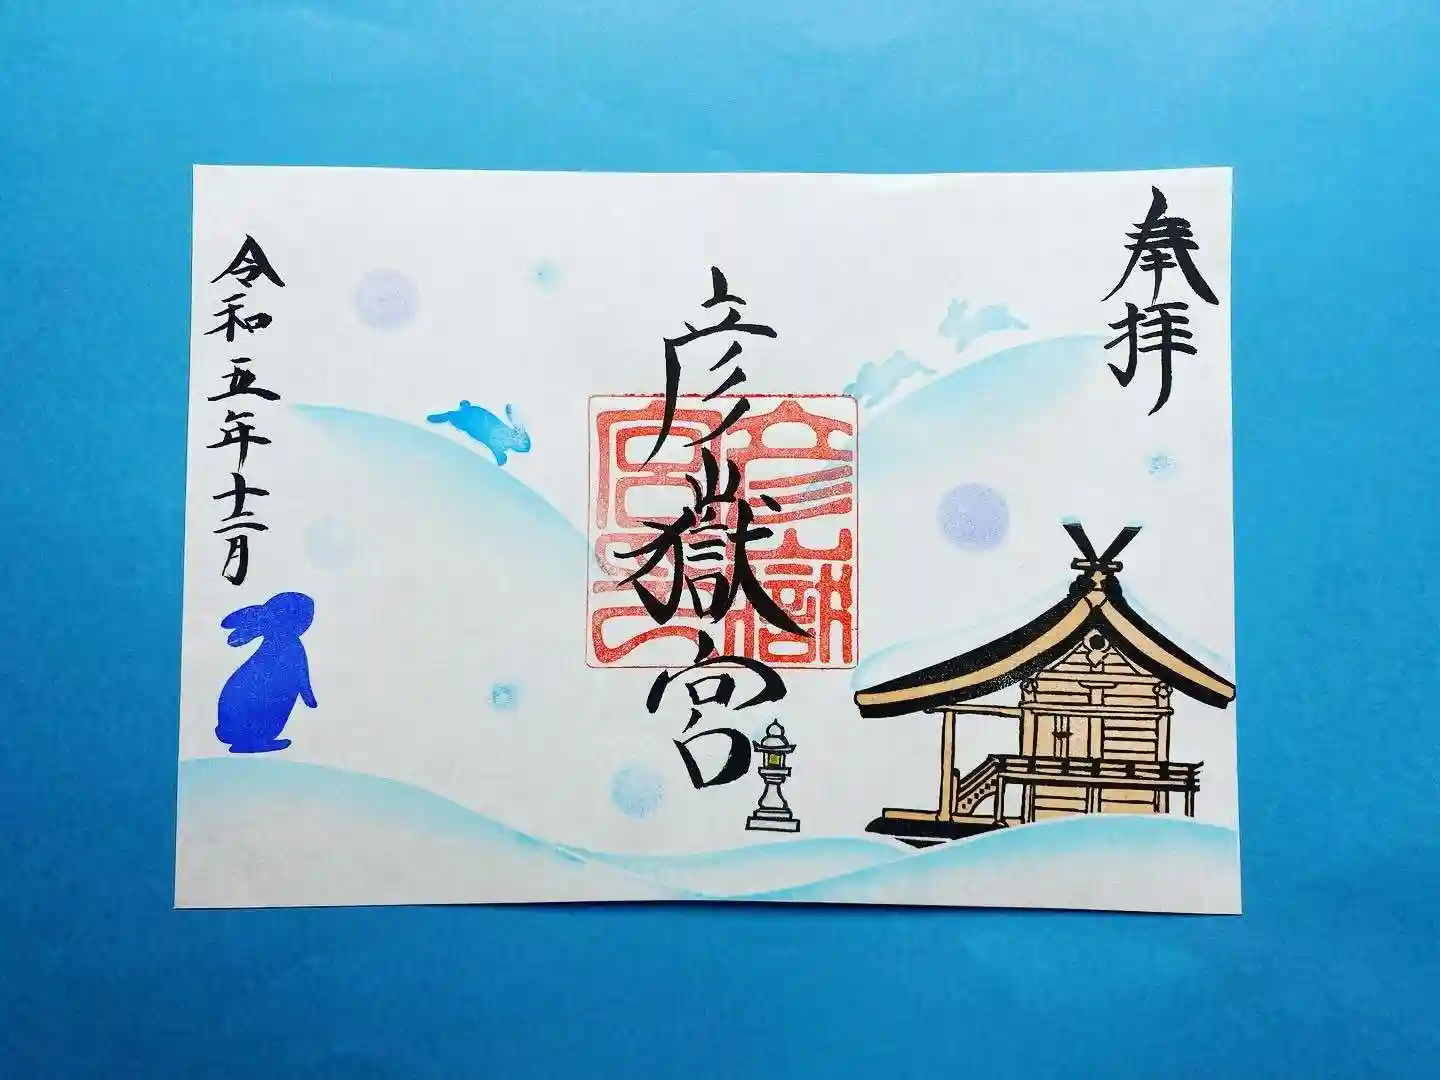 奉拝
彦嶽宮
彦嶽宮之印
令和五年十二月